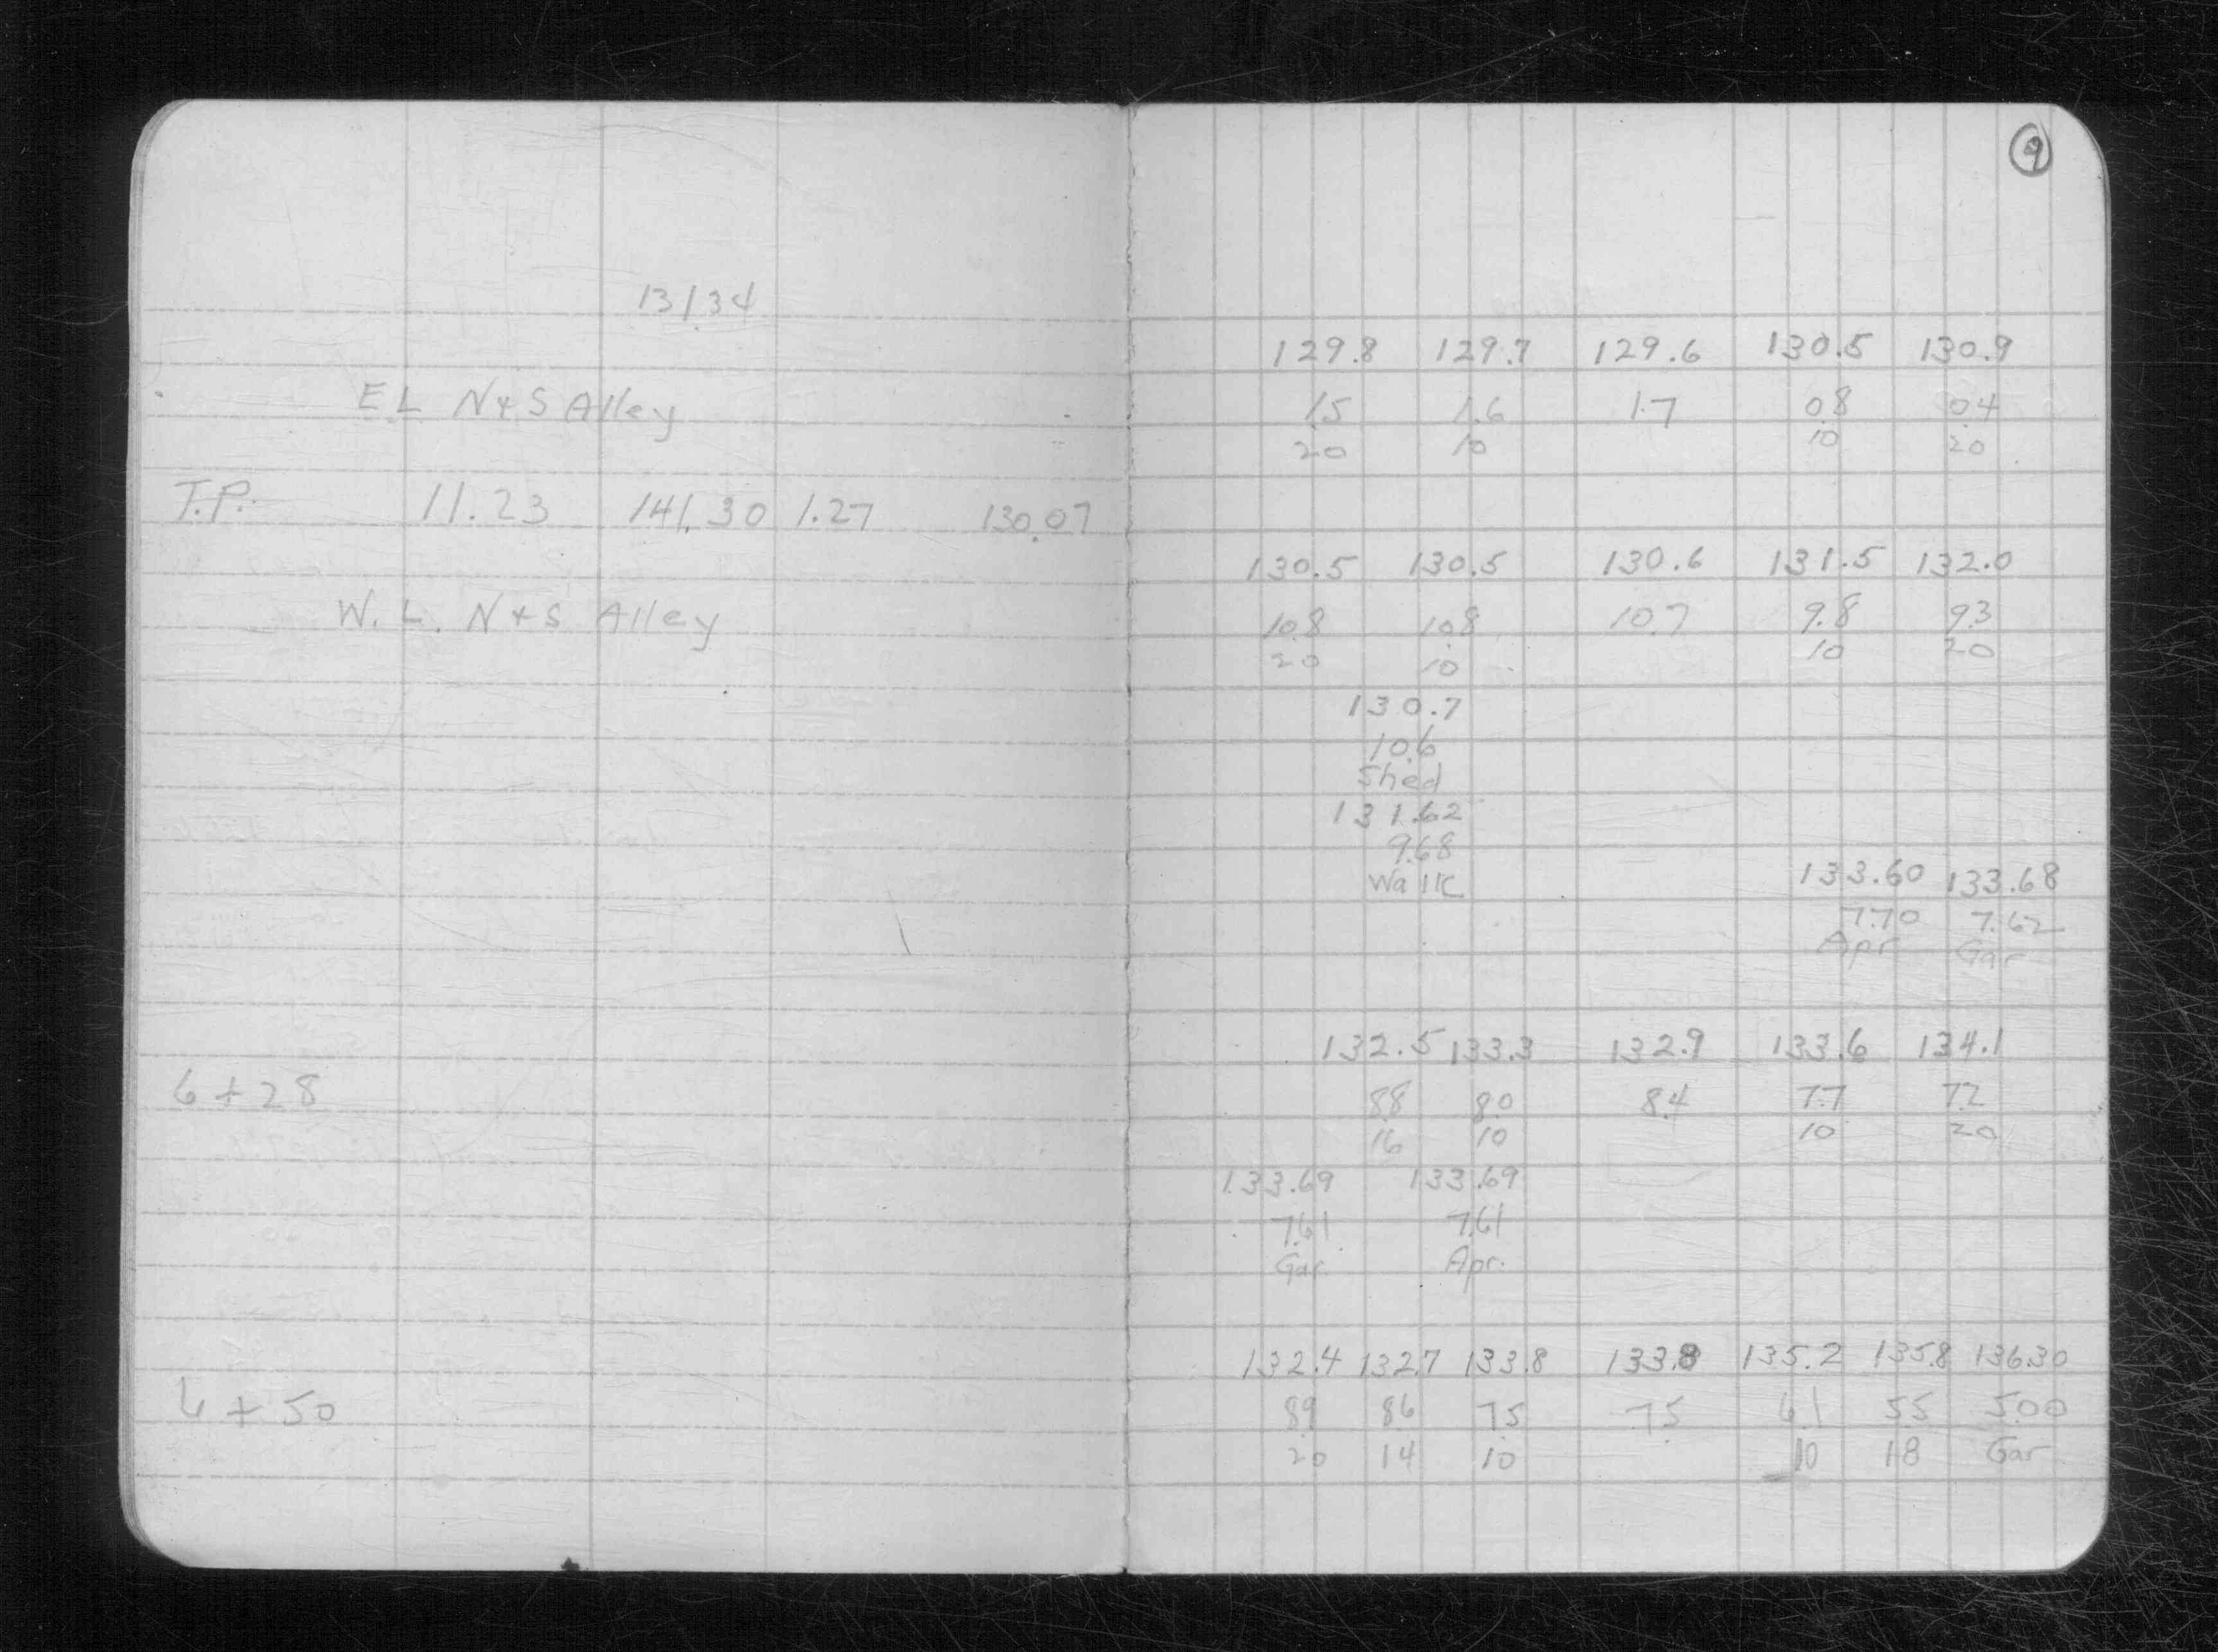 9
131.34
129.8 129.7 129.6 130.5 130.9
E L N+S Alley 1.5 1.6 1.7 0.8 0.4
20 10 10 20
T.P. 11.23 141.30 1.27 130.07
130.5 130.5 130.6 131.5 132.0
W. L. N+S Alley 10.8 10.8 10.7 9.8 9.3
20 10 10 20
130.7
10.6
Shed
131.62
9.68
Walk 133.60 133.68
7.70 7.62
Apr Gar
132.5 133.3 132.9 133.6 134.1
6+28 8.8 8.0 8.4 7.7 7.2
16 10 10 20
133.69 133.69
7.61 7.61
Gar. Apr.
132.4 132.7 133.8 133.8 135.2 135.8 136.30
6+50 8.9 8.6 7.5 7.5 6.1 5.5 5.00
20 14 10 10 18 Gar